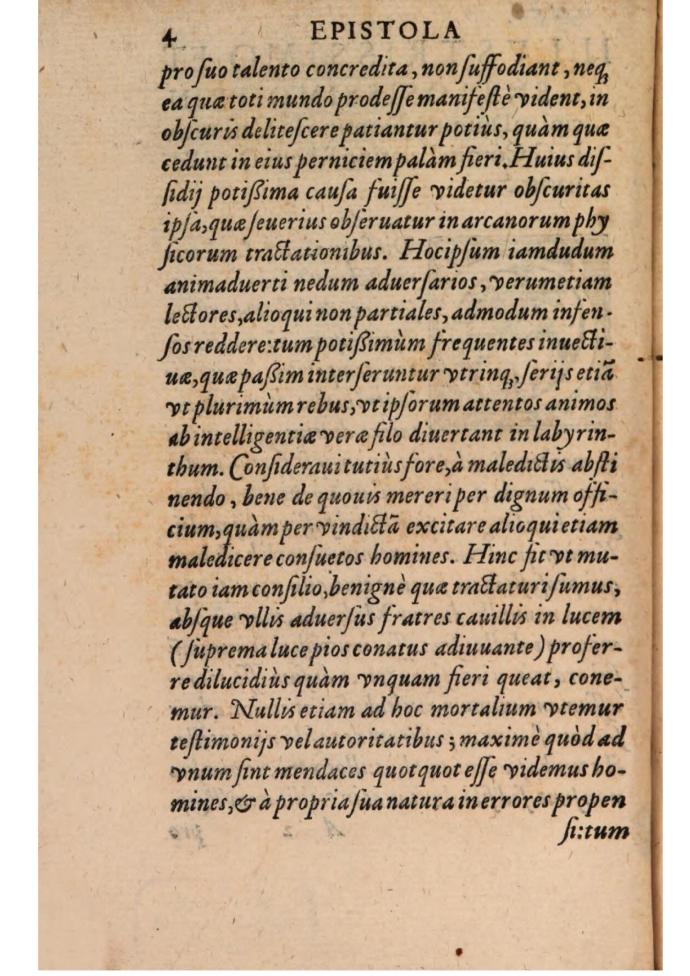 4 EPISTOLA
pro ſuo talento concredita, non ſuffodiant, neqꝫ
ea quæ toti mundo prodeſſe manifeſtè vident, in
obſcuris deliteſcere patiantur potiùs, quàm quæ
cedunt in eius perniciem palàm fieri. Huius diſ-
ſidij potißima cauſa fuiſſe videtur obſcuritas
ipſa, quæ ſeuerius obſeruatur in arcanorum phy
ſicorum tractationibus. Hoc ipſum iamdudum
animaduerti nedum aduerſarios, verumetiam
lectores, alioqui non partiales, admodum infen-
ſos reddere: tum potißimùm frequentes inuecti-
uæ, quæ paßim interſeruntur vtrinqꝫ, ſerijs etiã
vt plurimùm rebus, vt ipſorum attentos animos
ab intelligentiæ veræ filo diuertant in labyrin-
thum. Conſideraui tutiùs fore, à maledictis abſti
nendo, bene de quouis mereri per dignum offi-
cium, quàm per vindictã excitare alioqui etiam
maledicere conſuetos homines. Hinc fit vt mu-
tato iam conſilio, benignè quæ tractaturi ſumus,
abſque vllis aduerſus fratres cauillis in lucem
(ſuprema luce pios conatus adiuuante) profer-
re dilucidiùs quàm vnquam fieri queat, cone-
mur. Nullis etiam ad hoc mortalium vtemur
teſtimonijs vel autoritatibus; maximè quòd ad
vnum ſint mendaces quotquot eſſe videmus ho-
mines, & à propria ſua natura in errores propen
ſi: tum